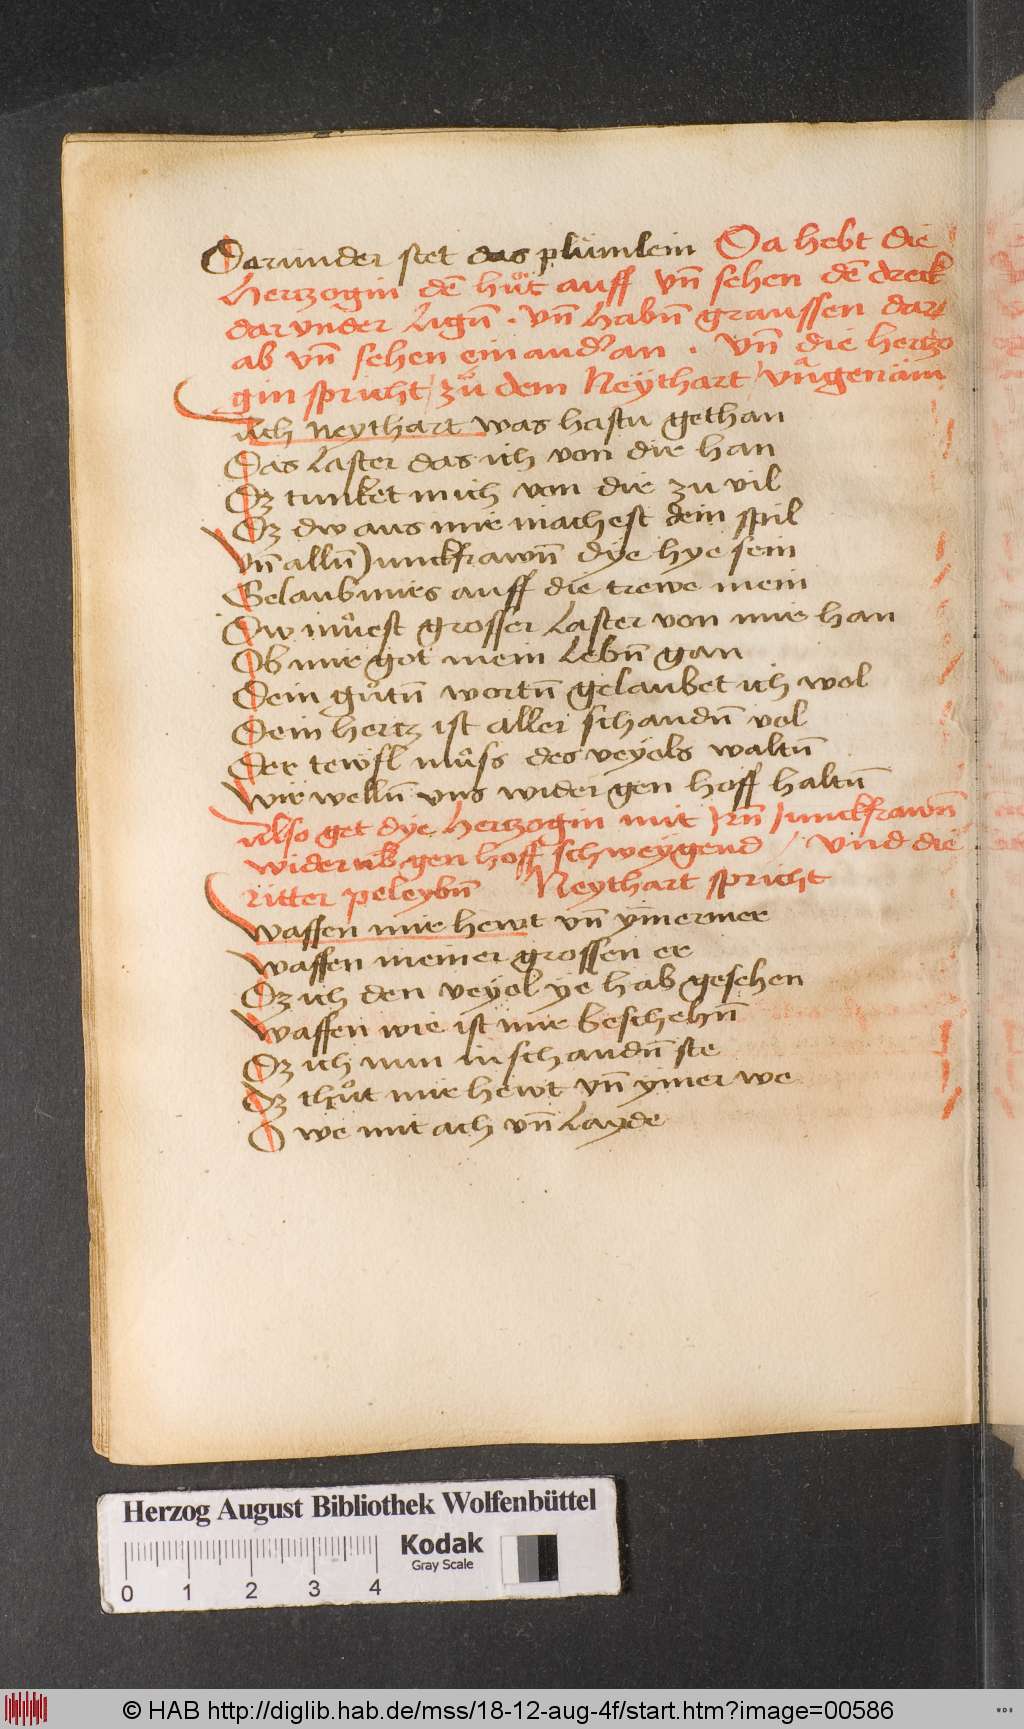 Darunder stet das plümlein Da hebt die
hertzogin dē hůt auff vn̄ sehen dē dreck
darvnder Lign̄ . vn̄ habn̄ graussen dar
ab vn̄ sehen ein ander an . vn̄ die hertzo
gin spricht / zů dem Neythart /
Ach Neythart was hastu gethan
Das Laster das ich von dir han
Dz tunket mich von dir zu vil
Dz dw aus mir machest dein spil
vn̄ alln̄ Junckfrawn̄ dye hye sein
Gelaub mirs auff die trewe mein
Dw můest grosser Laster von mir han
Ob mir got mein Lebn̄ gan
Dein gůtn̄ wortn̄ gelaubet ich wol
Dein hertz ist aller schandn̄ vol
Der tewfl můss des veyols waltn̄
wir welln̄ vns wider gen hoff haltn̄
Also get dye hertzogin mit Jrn̄ Junckfrawn̄
widerub gen hoff schweygend / Vnd die
ritter peleybn̄ Neythart spricht
waffen mir hewt vn̄ ymermer
waffen meiner grossen er
Dz ich den veyol ye hab gesehen
waffen wie ist mir beschehn̄
Dz ich nun in schandn̄ ste
Dz thůt mir hewt vn̄ ymer we
O we mit ach vn̄ Layde
Herzog August Bibliothek Wolfenbüttel
Kodak
Gray Scale
0 1 2 3 4
© HAB http://diglib.hab.de/mss/18-12-aug-4f/start.htm?image=00586